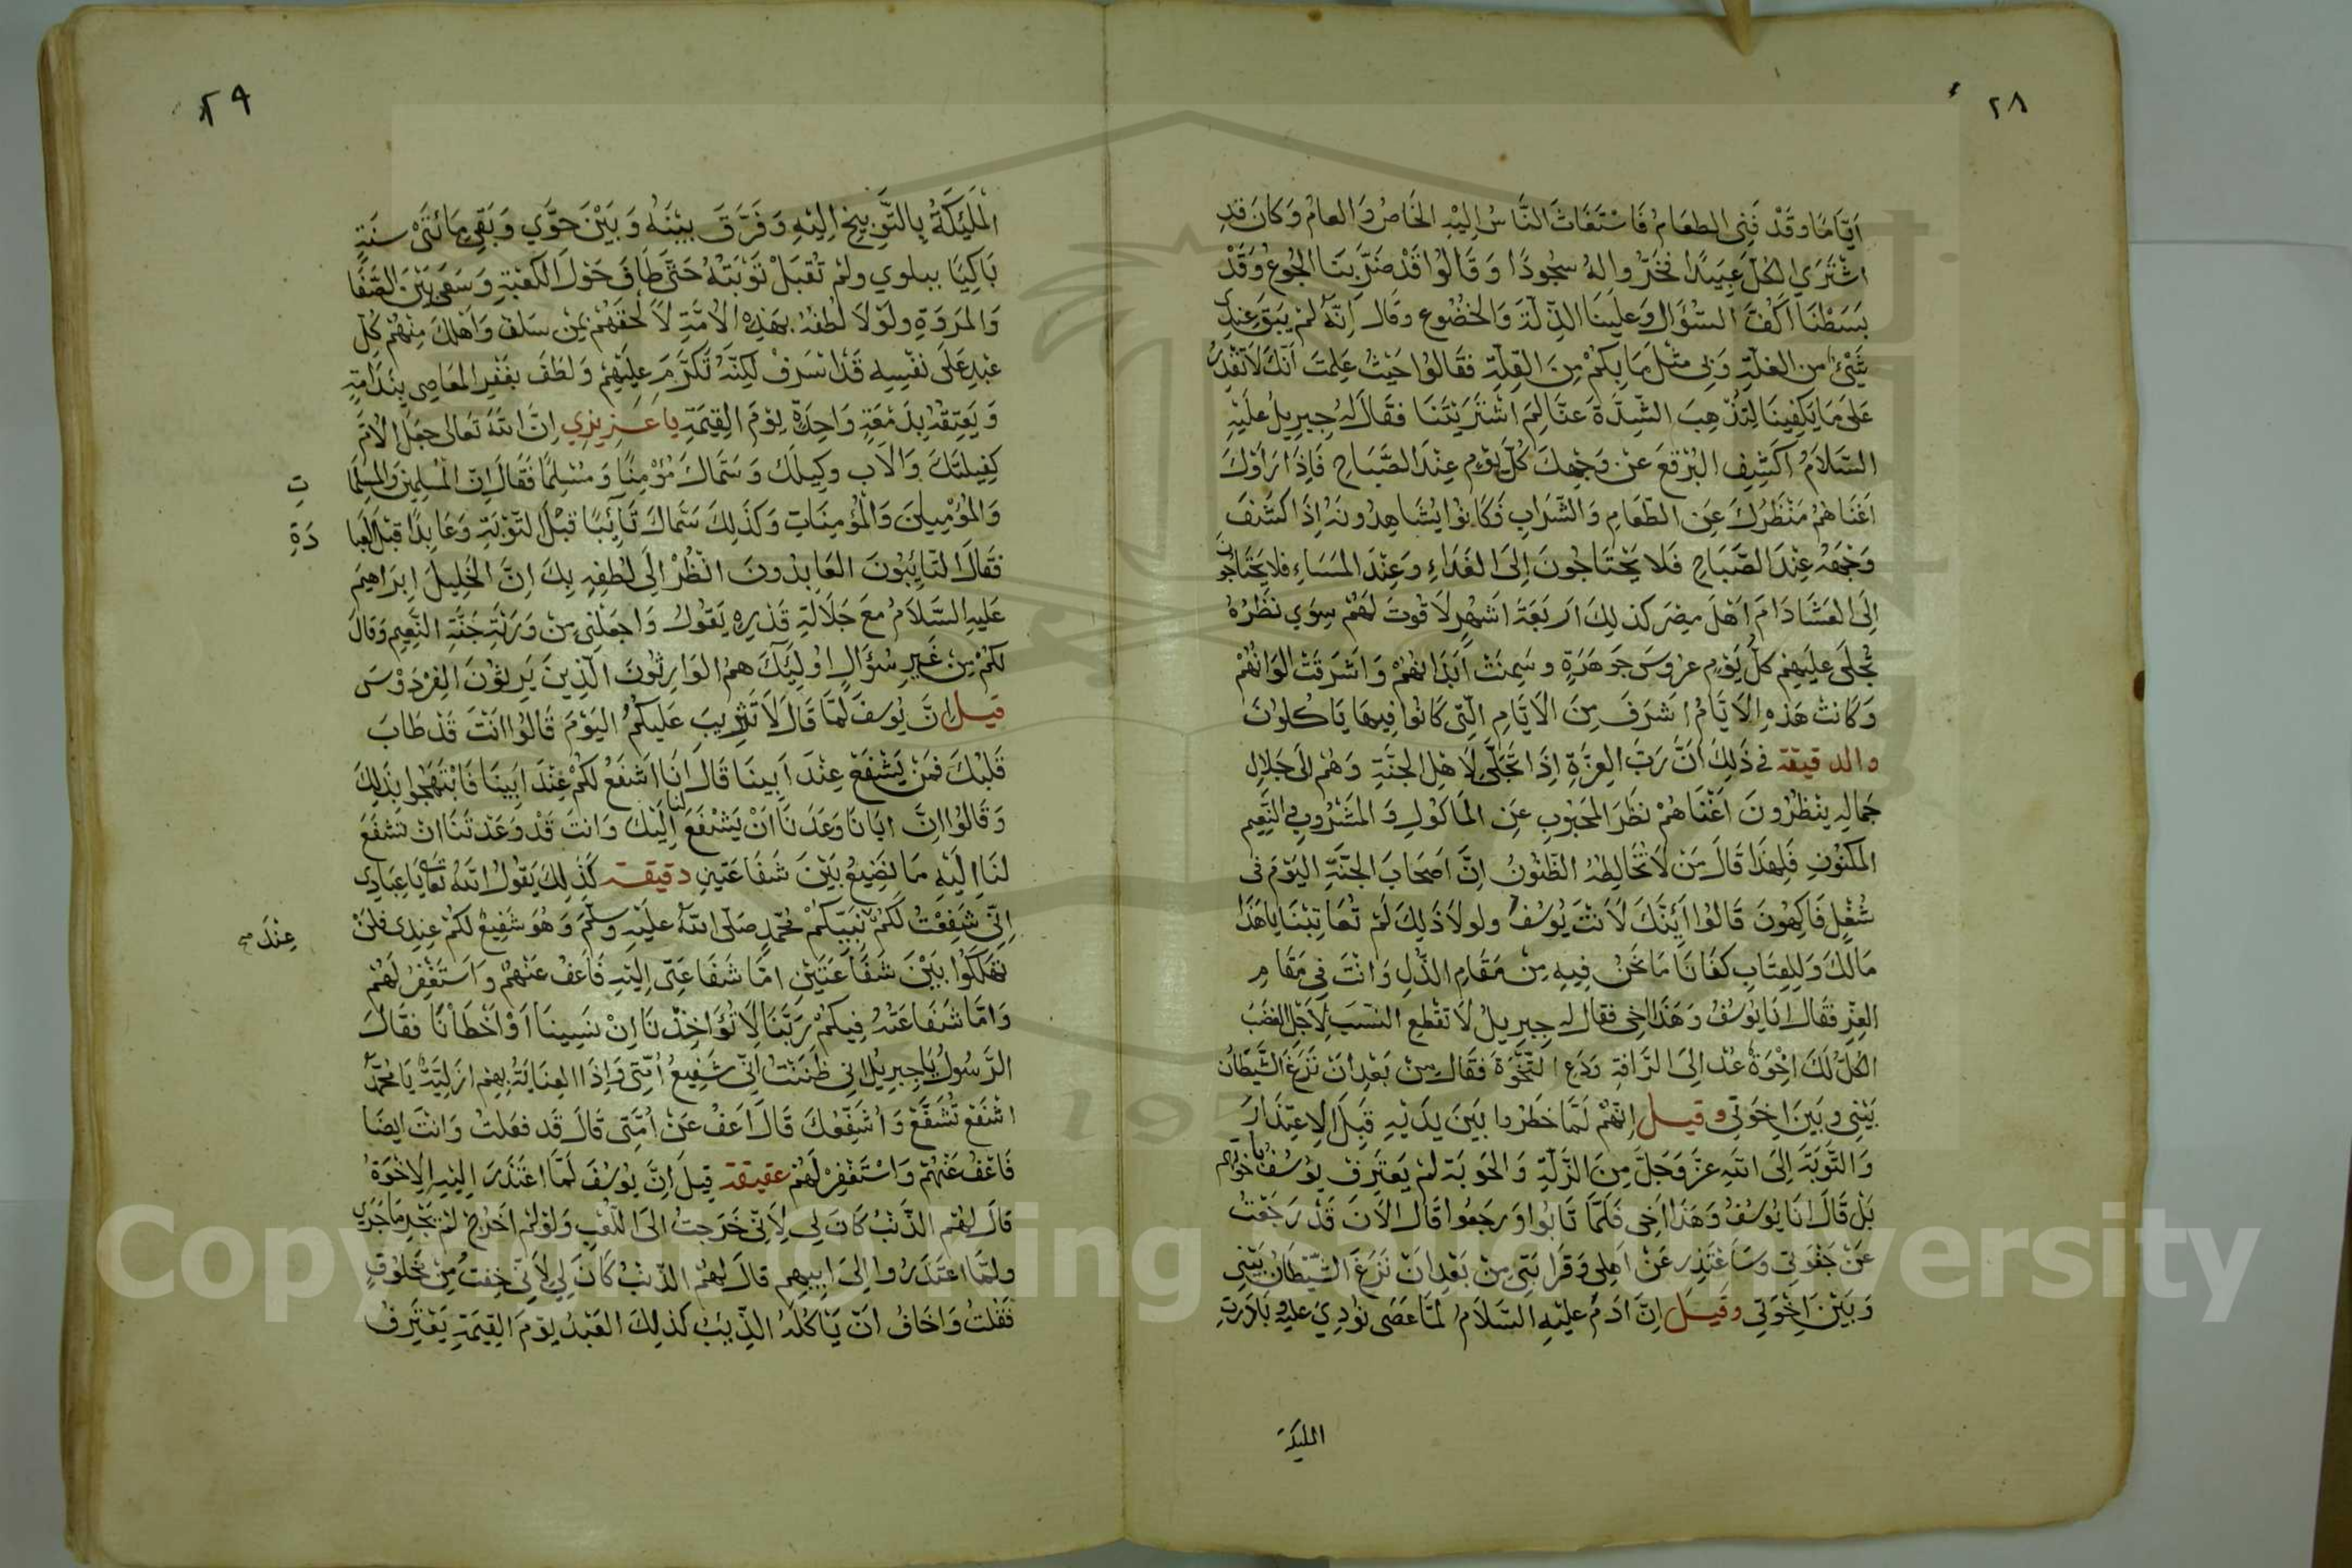 ٢٨
أيّامًا وقَدْ فَنِيَ الطعَامُ فَاسْتَغَاثَ النَّاسُ اِلَيْهِ الخَاصُ وَالعامُ وَكَانَ قدِ
اشْتَرَي الكُلَّ عَبِيدًا فَخَرُّوا لهُ سجُودًا وَقَالُوا قَدْ ضَرَّ بِنَا الجُوعُ وَقَدْ
بَسَطْنَا اَكُفَّ السُّؤَالِ وَعَلَيْنَا الذِّلَّةَ وَالخُضُوعِ وقَالَ اِنَّهُ لَمْ يَبقَ عِندِي
شَيْئٌ من الغلَّةِ وَبِي مثْلَ مَا بِكُمْ مِنَ القِلَّةِ فقَالُوا حَيْثُ عَلِمتَ اَنَّكَ لَا تَقْدِرُ
عَلَى مَا يَكفِينَا لِتُذْهِبَ الشِّدَّةَ عَنَّا لِمَ اشْتَرَيْتَنَا فقَالَ لهُ جِبرِيلُ عَلَيْهِ
السَّلَامُ اكشِفِ البُرْقعَ عَنْ وَجْهِكَ كُلَّ يَوْمٍ عِنْدَ الصَّبَاحِ فَاِذَا رَاَوْكَ
اَغنَاهُمْ مَنْظَرُكَ عَنِ الطّعَامِ وَالشَّرَابِ فَكَانُوا يُشَاهِدُونَهُ اِذَا كشَفَ
وَجْهَهُ عِنْدَ الصَّبَاحِ فَلَا يَحْتَاجُونَ اِلَى الغَدَاءِ وَعِنْدَ المَسَاءِ فلا يَحْتَاجُونَ
اِلَى العَشَا دَامَ اَهْلَ مِصْرَ كذلِكَ اَربَعَةَ اَشهُرٍ لَا قُوتَ لَهُمْ سِوَي نَظَرُهُ
تُجلَى عَلَيْهِمْ كُلَّ يَوْمٍ عرُوسَ جَوهَرَةٍ وسَمِنَتْ اَبْدَانُهُمْ وَاَشرَقَتْ اَلوَانُهُمْ
وَكَانتْ هَذهِ الاَيَّامُ اَشرَفَ مِنَ الاَيّامِ الّتِي كَانُوا فِيهَا يَاكلونَ
والدقيقة في ذَلِكَ اَنَّ رَبَّ العِزَّةِ اِذَا تَجَلَّى لِاَهْلِ الجَنَّةِ وَهُمْ الَى جَلَالِ
جمَالِهِ يَنْظُرُونَ اَغْنَاهُمْ نظَرَ المَحْبُوبِ عَنِ المَاكُولِ وَالمَشرُوبِ في النّعِيمِ
المَكنُونِ فَلِهذَا قَالَ مَنْ لَا تُخَالِطهُ الظّنُونُ اِنَّ اَصحَابَ الجَنَّةِ اليَوْمَ في
شُغُلٍ فَاكِهُونَ قَالُوا اَئِنَّكَ لَاَنْتَ يُوسُفُ ولولَا ذَلِكَ لَمْ تُعَاتِبْنَا يا هَذَا
مَالكَ وَلِلعِتَابِ كفَانَا مَا نَحْنُ فِيهِ مِنْ مَقَامِ الذُّلِّ وَاَنْتَ فِي مَقَامِ
العِزّ فقَالَ اَنَا يوُسُفُ وَهَذَا اَخِي فقال له جِبرِيلُ لَا تَقْطعِ النسَبَ لِاَجْلِ الغضَبُ
الكلُّ لَكَ اِخْوَةٌ عُدْ اِلَى الرَّافةِ وَدَعِ النَّخْوَةَ فقَالَ مِنْ بَعْدِ اَنْ نَزَغَ الشَّيطَانُ
بَيْنِي وبَينَ اِخوَتِي وقيل اِنَّهُمْ لَمَّا خطَرُوا بَينَ يدَيْهِ قبلَ الاِعتِذَارِ
وَالتَّوبَةِ اِلَى اللهِ عَزَّ وَجَلَّ مِنَ الزَّلَّةِ وَالحَوبَةِ لَمْ يَعتَرِفْ يُوسُفُ بِاُخُوَّتِهِم
بَلْ قَالَ اَنَا يُوسُفُ وَهَذَا اَخِي فلَمَّا تَابُوا وَرجَعُوا قَالَ الاَنَ قَدْ رَجَعْتُ
عَنْ جَفْوَتِي وسَاَعْتَذِر عَنْ اَهلِي وَقَرَابَتِي مِنْ بَعْدِ اَنْ نَزَغَ الشّيْطَانُ بَيْنِي
وَبَيْنَ اِخْوَتِي وقيل اِنَّ ادَمَ عليْهِ السَّلَامُ لَمَّا عَصَى نُودِيَ عليه وبَادَرَتِ
المليكة
٢٩
المَلَئِكَةُ بِالتَّوبِيخِ اِليْهِ وَفَرَّقَ بَيْنَهُ وَبَيْنَ حَوَّي وَبَقِيَ مَائَتَيْ سنَةٍ
بَاكِيَا ببلوي ولَمْ تُقبَلْ تَوْبَتُهُ حَتَّى طَافَ حَوْلَ الكَعْبَةِ وَسَعَى بَيْنَ الصَّفَا
وَالمَروَةِ ولَوْلَا لُطْفُهُ بهَذِهِ الاُمَّةِ لَاَلْحَقَهُمْ بِمَنْ سَلَفْ وَاَهْلكَ مِنهُمْ كُلّ
عَبْدٍ عَلَى نفْسِهِ قَدْ اَسْرَفْ لَكِنّهُ تَكَرَّمَ عليْهِمْ وَلَطَفَ بغَفْرِ المَعَاصِي بِنَدَامَةٍ
وَيَعتِقهُ بِدَمْعَةٍ وَاحِدَةٍ يَوْمَ القِيَمَةِ يا عَزِيزِي اِنَّ اللهَ تَعَالَى جعَلَ الاُمَّ
كَفِيلَتَكَ وَالاَب وكِيلَك وَسَمَّاكَ مُؤْمِنًا وَمُسْلِمًا فَقَالَ اِنّ المُسْلِمِينَ وَالمسلِمَا
تِ
وَالمُؤْمِنِينَ وَالمُؤمِنَاتِ وَكَذَلِكَ سَمَّاكَ تَائِبًا قَبْلَ التّوْبَةِ وَعَابِدًا قَبْلَ العِبَا
دَةِ
فَقَالَ التّائِبُونَ العَابِدُونَ انْظُرْ اِلَى لُطفِهِ بِكَ اِنَّ الخَلِيلَ اِبرَاهِيمَ
عَليهِ السَّلَامُ معَ جَلَالَةِ قَدْرِهِ يَقُولُ وَاجعَلْنِي مِنْ وَرَثَةِ جَنَّةِ النَّعِيمِ وَقَالَ
لَكُمْ مِنْ غَيرِ سُؤَالٍ اُولئِكَ همُ الوَارِثُونَ الّذِينَ يَرِثُونَ الفِرْدَوْسَ
قيل اِنَّ يُوسُفَ لَمَّا قَالَ لَا تَثْرِيبَ عَلَيكُمُ اليَوْمَ قَالُوا اَنْتَ قَدْ طَابَ
قَلبُكَ فَمَنْ يَشْفَعْ عِنْدَ اَبِينَا قَالَ اَنَا اَشفَعُ لكُمْ عِنْدَ اَبِينَا فَابْتَهَجُوا بذَلِكَ
وَقَالُوا اِنَّ اَبَانَا وَعَدَنَا اَنْ يَشْفَعَ لنا اِلَيْكَ وَاَنتَ قَدْ وَعَدْتَنَا انْ تشفَعَ
لنَا اِليْهِ مَا نَضِيعُ بَيْنَ شَفَاعَتَينِ دقيقة كَذلِكَ يَقُولُ اللهُ تَعَالَى يَا عِبَادِي
اِنِّي شَفِعْتُ لَكُمْ نَبِيّكُمْ مُحَمّدٍ صَلّى اللهُ علَيْهِ وسلّمَ وَهُوَ شَفِيعٌ لكُمْ عِنْدِى فلَنْ
عِنْدَ صح
تَهْلَكُوا بَيْنَ شَفَاعَتَيْنِ اَمّا شَفَاعَتِي اِليْهِ فَاعْفُ عَنْهُمْ وَاستَغْفِرْ لَهُمْ
وَاَمَّا شَفَاعَتُهُ فِيكُمْ رَبّنَا لَا تُؤَاخِذْنَا اِنْ نَسِينَا اَوْ اَخْطَاْنَا فقَالَ
الرَّسُولُ يَا جِبرِيلُ اِنِي ظَنَنْتُ اَنّي شَفِيعُ اُمّتِي وَاِذَا العِنَايَةُ بِهِمْ اَزَلِيَّةٌ يَا مُحَمَّدُ
اشْفَعْ تُشَفَّعْ وَاُشَفِّعُكَ قَالَ اَعفُ عَنْ اُمّتَى قَالَ قَد فعَلتُ وَانْتَ اَيضَا
فَاعْفُ عَنْهُمْ وَاسْتَغْفِرْ لَهُمْ عقيقة قِيلَ اِنَّ يُوسُفَ لَمّا اعْتَذَرَ اِلَيْهِ الاِخْوَةُ
قَالَ لهُمُ الذّنْبُ كَانَ لِي لِاَنِّي خَرَجتُ الَى اللّعْبِ وَلَوْ لَمْ اَخْرُجْ لَمْ يَجْرِ مَا جَرَي
ولَمّا اعتَذَرُوا اِلى اَبِيهِمِ قالَ لهُمُ الذّنْبُ كَانَ لِي لِاَنّي خِفتُ مِنْ مَخْلُوقٍ
فَقُلتُ وَاَخَافُ اَنّ يَاكُلَهُ الذّيبُ كَذلِكَ العَبْدُ يَوْمَ القِيَمَةِ يَعْتَرِفُ
Copyright © King Saud University
195